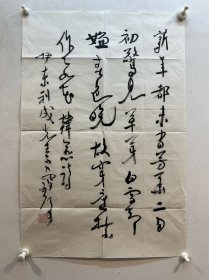 新年都未有芳華二月
初驚見草芽白雪却
嫌春色晚故穿庭樹
作飛花 韓愈詩
伊東利成先生